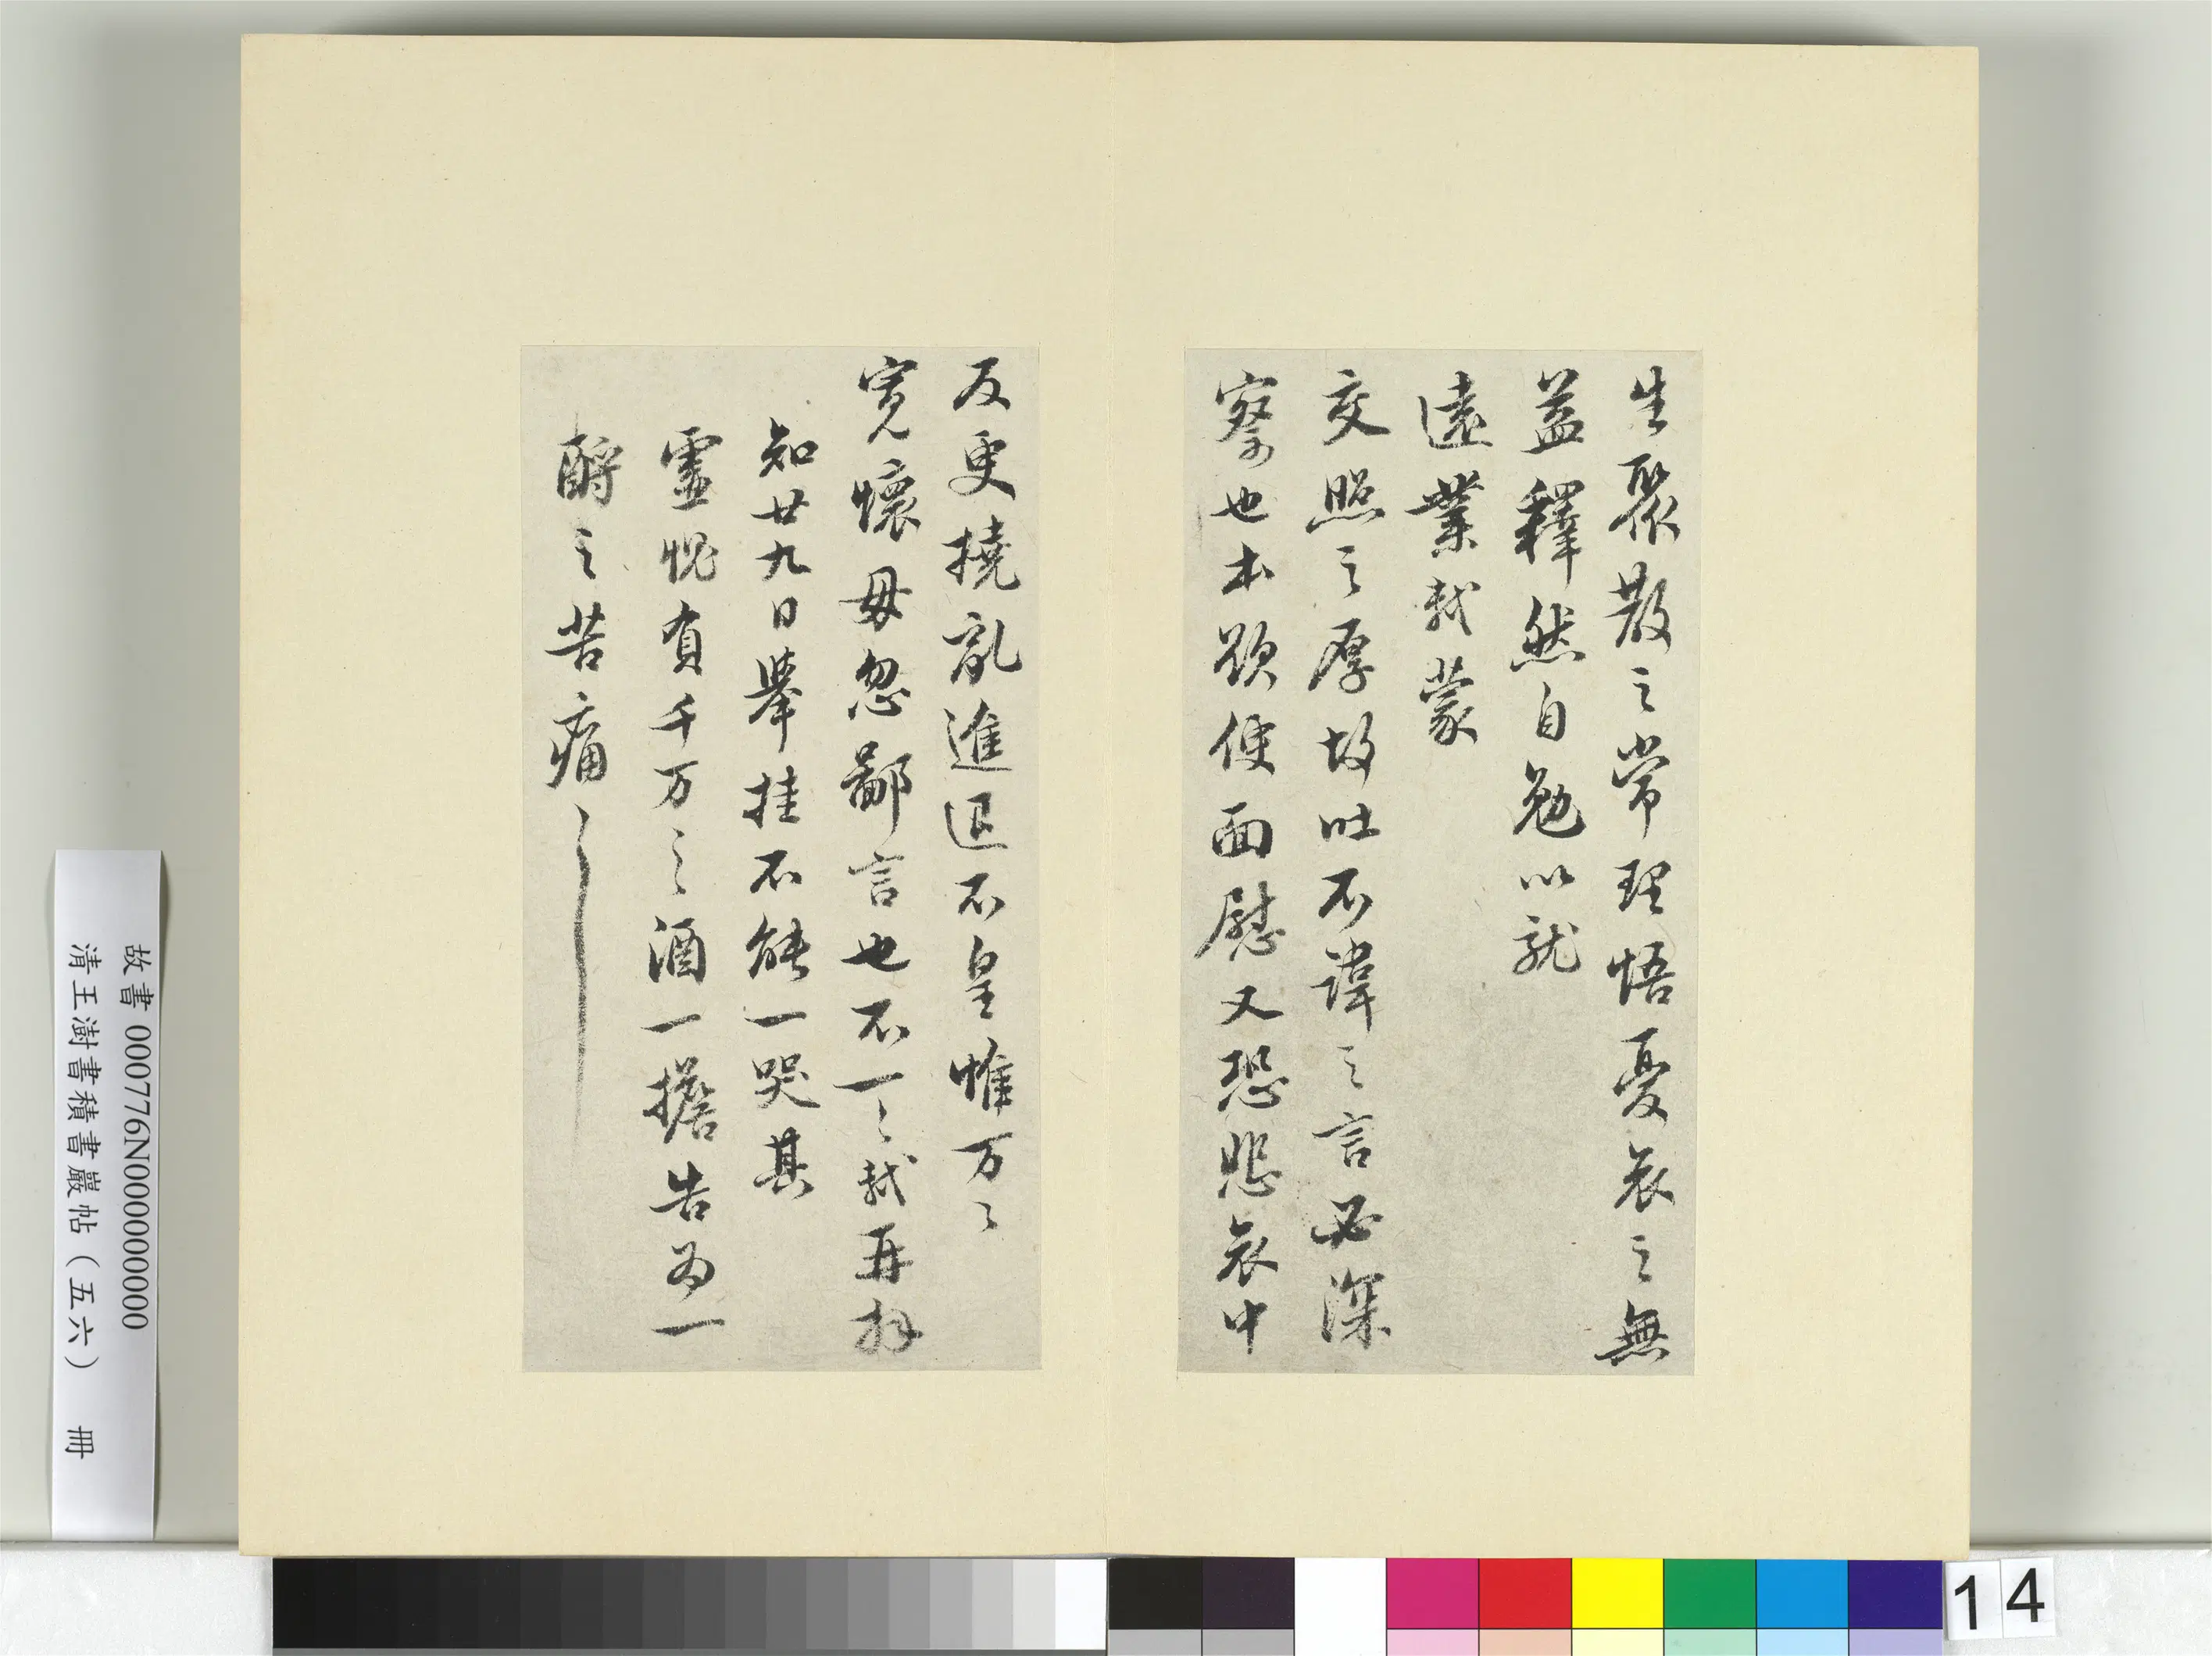 生聚散之常理悟憂哀之無
益釋然自勉以就
遠業軾蒙
交照之厚故吐不諱之言必深
察也本欲便面慰又恐悲哀中
反更撓亂進退不皇惟万〻
寬懷毋忽鄙言也不一〻軾再拜
知廿九日舉挂不能一哭其
靈愧負千万〻〻酒一擔告為一
酹之苦痛〻〻
故書 000776N000000000
清王澍書積書巖帖（五六） 冊
14